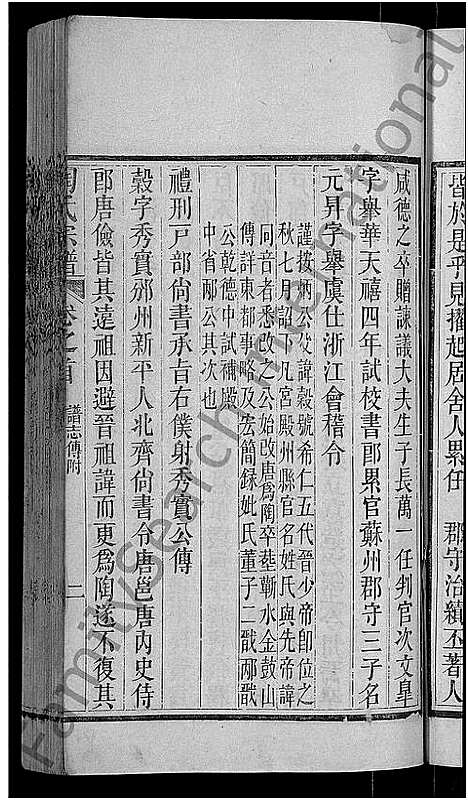 皆於是乎見擢起居舍人累任 郡守治績丕著人
咸德之卒贈諫議大夫生子長萬一任判官次文皇
字舉華天禧四年試校書郎累官蘇州郡守三子名
元昇字舉虞仕浙江會稽令
謹按炳公父諱穀號希仁五代晉少帝即位之
秋七月詔下凡宮殿州縣官名姓氏與先帝諱
同音者悉改之公始改唐爲陶卒塟蘄水金鼓山
傳詳東都事略及宏簡録妣氏董子二戩邴戩
公乾德中試補殿
中省邴公其次也
禮刑戸部尚書承旨右僕射秀實公傳
穀字秀實邠州新平人北齊尚書令唐邕唐内史侍
郎唐儉皆其遠祖因避晉祖諱而更爲陶遂不復其
陶氏宗譜 卷之首 譜志傳附 二
FamilySearch International